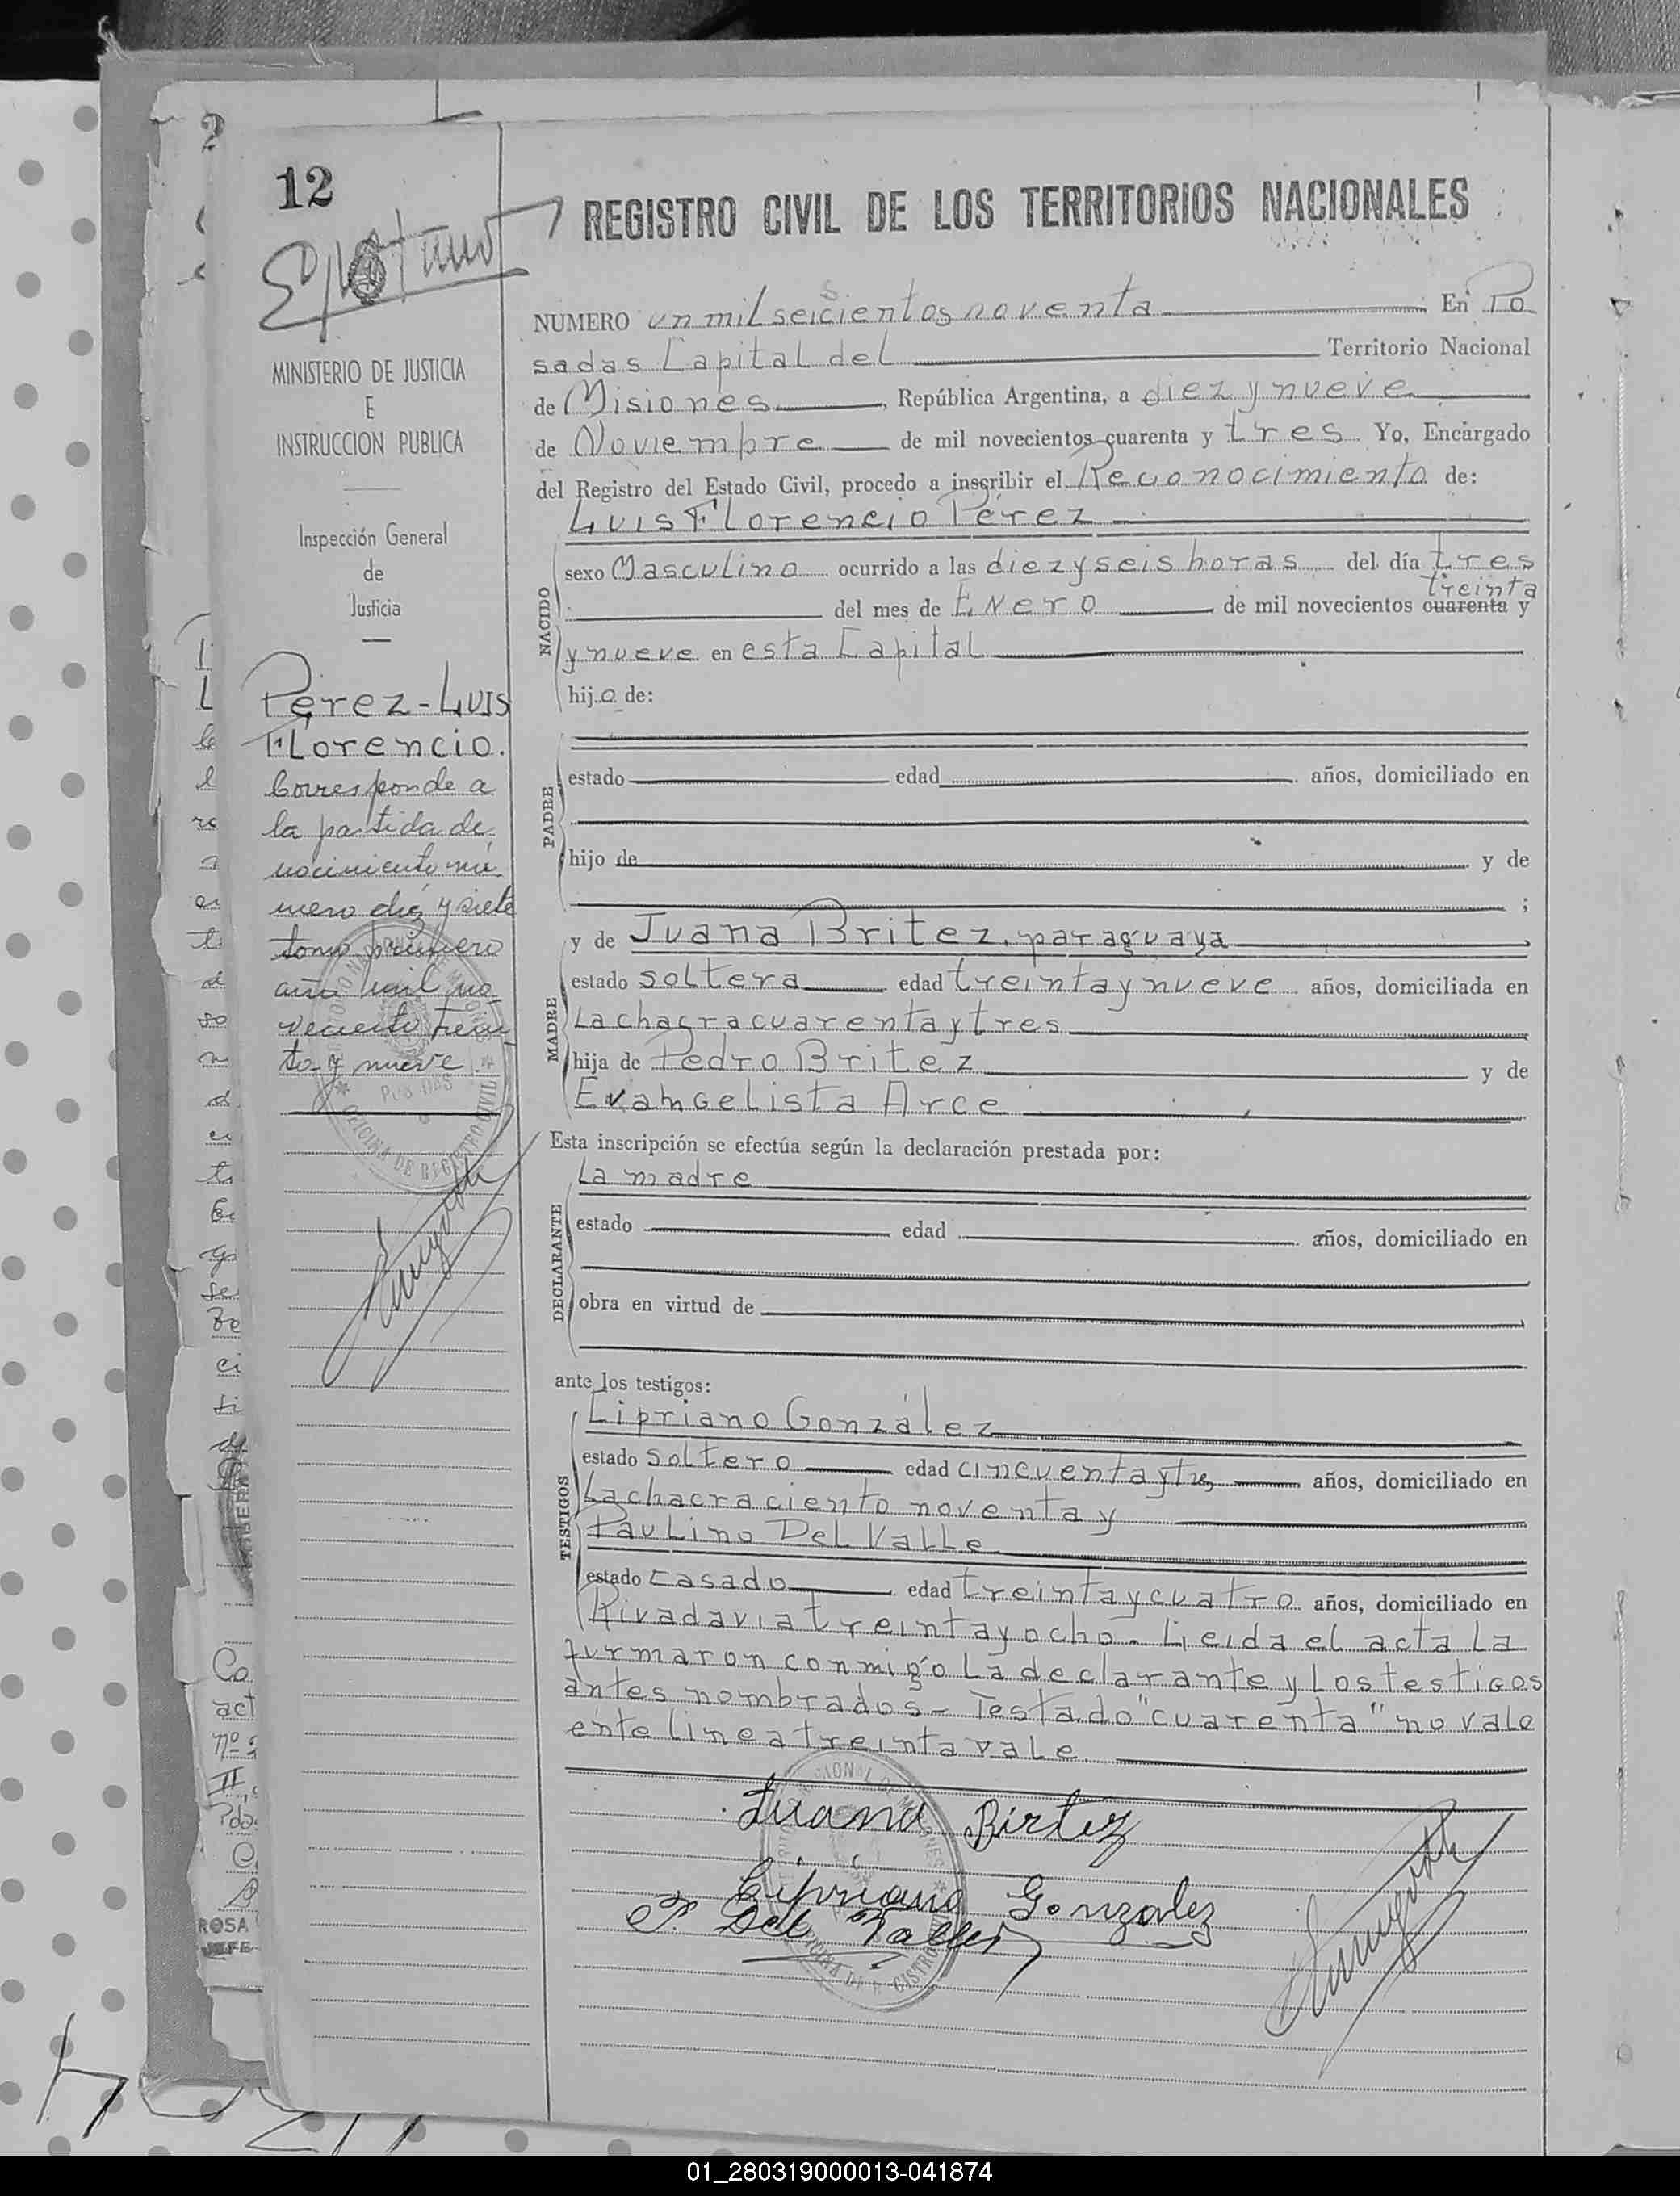 12
REGISTRO CIVIL DE LOS TERRITORIOS NACIONALES
MINISTERIO DE JUSTICIA
E
INSTRUCCION PUBLICA
Inspección General
de
Justicia
Pérez-Luis
Florencio.
Corresponde a
la partida de
nacimiento nú
mero diez y siete
tomo primero
año mil no-
veciento trein
ta y nueve.
NUMERO un mil seicientos noventa En Po
sadas Capital del Territorio Nacional
de Misiones, República Argentina, a diez y nueve
de Noviembre de mil novecientos cuarenta y tres Yo, Encargado
del Registro del Estado Civil, procedo a inscribir el Reconocimiento de:
Luis Florencio Pérez
NACIDO
sexo Masculino ocurrido a las diez y seis horas del día tres
treinta
del mes de Enero de mil novecientos cuarenta y
y nueve en esta Capital
hijo de:
PADRE
estado edad años, domiciliado en
hijo de y de
;
MADRE
y de Juana Britez, paraguaya
estado soltera edad treinta y nueve años, domiciliada en
La chacra cuarenta y tres
hija de Pedro Britez y de
Evangelista Arce
Esta inscripción se efectúa según la declaración prestada por:
La madre
DECLARANTE
estado edad años, domiciliado en
obra en virtud de
ante los testigos:
TESTIGOS
Cipriano González
estado soltero edad cincuenta y tres años, domiciliado en
La chacra ciento noventa y
Paulino Del Valle
estado casado edad treinta y cuatro años, domiciliado en
Rivadavia treinta y ocho. Lieida el acta la
furmaron conmigo la declarante y los testigos
antes nombrados - Testado "cuarenta" no vale
ente linea treinta vale.
Juana Birtez
Cipriano Gonzalez
P. Del Valle
01_280319000013-041874